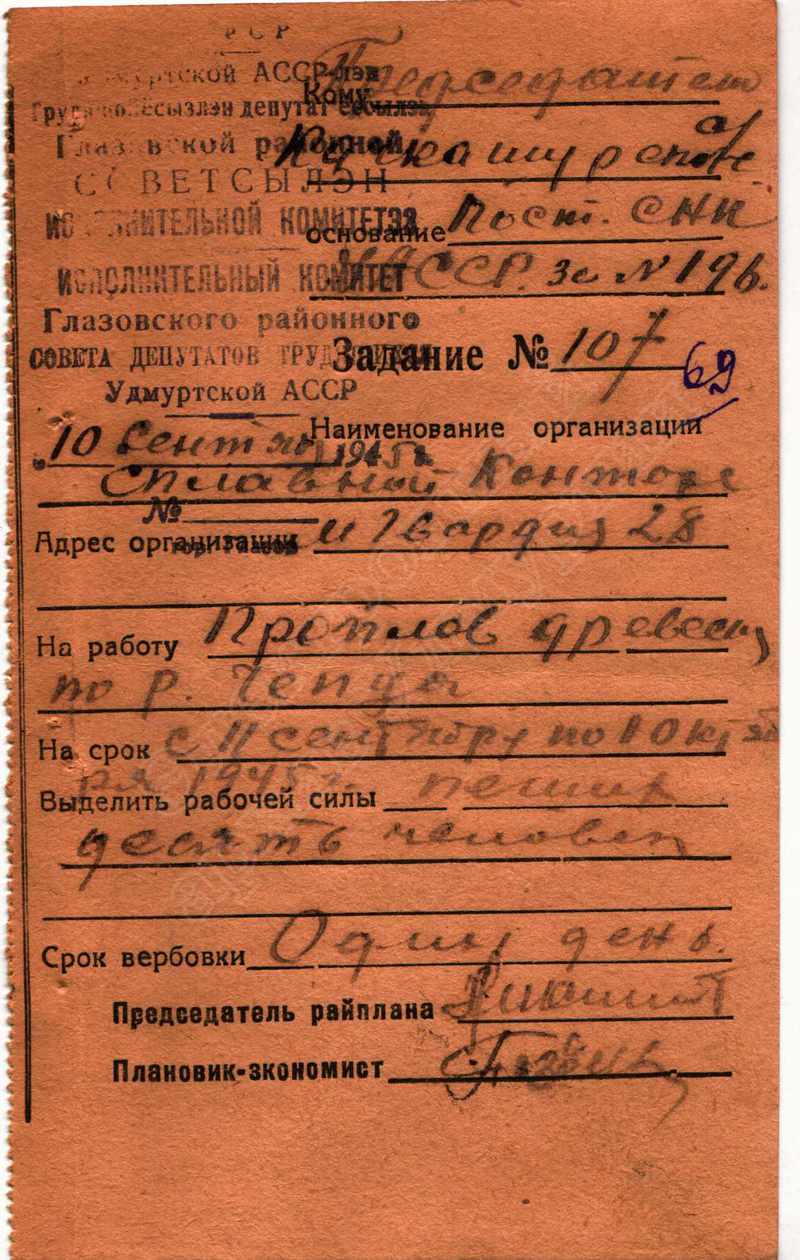 РСР
Удмуртской АССР-лэн
депутат
Глазовской районной
СОВЕТСЫЛЭН
ИСПОЛНИТЕЛЬНОЙ КОМИТЕТЭЗ
ИСПОЛНИТЕЛЬНЫЙ КОМИТЕТ
Глазовского районного
СОВЕТА ДЕПУТАТОВ ТРУДЯЩИХСЯ
Удмуртской АССР
10 Сентяб 1945 г.
№
гор. Глазов
Кому Председателю
Качкашурского
с/с
основание Пост. СНК
УАССР. за № 196.
Задание № 107
69
Наименование организации
Сплавной Конторе
Адрес организации Гвардия 28
На работу Проплов древесины
по р. Чепца
На срок с 11 сентября по 10 октяб
ря 1945 г.
Выделить рабочей силы пеших
десять человек
Срок вербовки Один день.
Председатель райплана
Плановик-экономист